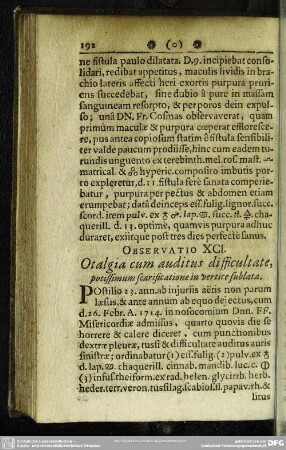 192 ❋ (o) ❋
ne fistula paulo dilatata. D.9. incipiebat conso-
lidari, redibat appetitus, maculis lividis in bra-
chio lateris affecti heri exortis purpura pruri-
ens succedebat, sine dubio â pure in massam
sanguineam resorpto, & per poros dein expul-
so; unâ DN. Fr. Cosmas observaverat, quam
primùm maculæ & purpura cœperat effloresce-
re, pus antea copiosum statim ê fistula sensibili-
ter valde paucum prodiisse, hinc cum eadem tu-
runda unguento ex terebinth. mel. ros. mast.
matrical. & hyperic. composito imbutis por-
ro expleretur, d. 11. fistula ferè sanata comperie-
batur, purpura per pectus & abdomen etiam
erumpebat; data deinceps ess. fulig. lignor. succ.
scord. item pulv. ex lap. succ. chaque-
rill. d. 13. optimè, quamvis purpura adhuc
duraret, exiitque post tres dies perfectè sanus.
OBSERVATIO XCI.
Otalgia cum auditus difficultate,
potissimum scarificatione in vertice sublata.
POstilio 23. ann. ab injuriis aëris non parum
læsus, & ante annum ab equo dejectus, cum
d. 26. Febr. A. 1714. in nosocomium Dnn. FF.
Misericordiæ admissus, quarto quovis die se
horrere & calere diceret, cum punctionibus
dextræ pleuræ, tussi & difficultate auditus auris
sinistræ; ordinabatur (1) ess. fulig. (2) pulv. ex
d. lap. chaquerill. cinnab. mandib. luc. c.
(3) infus. theiform. ex rad. helen. glycirrh. herb.
heder. terr. veron. tussilag. scabios. fl. papav. rh. &
litus